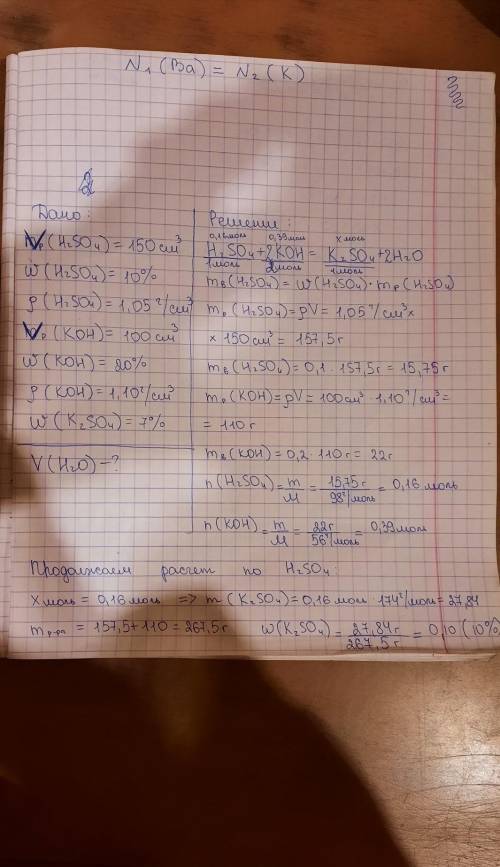 N₁(Ba) = N₂(K)
Дано:
Vр(H₂SO₄) = 150 см³
W(H₂SO₄) = 10%
ρ(H₂SO₄) = 1,05 г/см³
Vр(KOH) = 100 см³
W(KOH) = 20%
ρ(KOH) = 1,10 г/см³
W(K₂SO₄) = 7%
V(H₂O) – ?
Решение:
0,16 моль 0,39 моль x моль
H₂SO₄ + 2KOH = K₂SO₄ + 2H₂O
1 моль 2 моль 1 моль
mв(H₂SO₄) = W(H₂SO₄) · mр(H₂SO₄)
mр(H₂SO₄) = ρV = 1,05 г/см³ ×
× 150 см³ = 157,5 г
mв(H₂SO₄) = 0,1 · 157,5 г = 15,75 г
mр(KOH) = ρV = 100 см³ · 1,10 г/см³ =
= 110 г
mв(KOH) = 0,2 · 110 г = 22 г
n(H₂SO₄) = m/M = 15,75 г / 98 г/моль = 0,16 моль
n(KOH) = m/M = 22 г / 56 г/моль = 0,39 моль
Продолжаем расчет по H₂SO₄:
x моль = 0,16 моль => m(K₂SO₄) = 0,16 моль · 174 г/моль = 27,84
mр-ра = 157,5 + 110 = 267,5 г W(K₂SO₄) = 27,84 г / 267,5 г = 0,10 (10%)